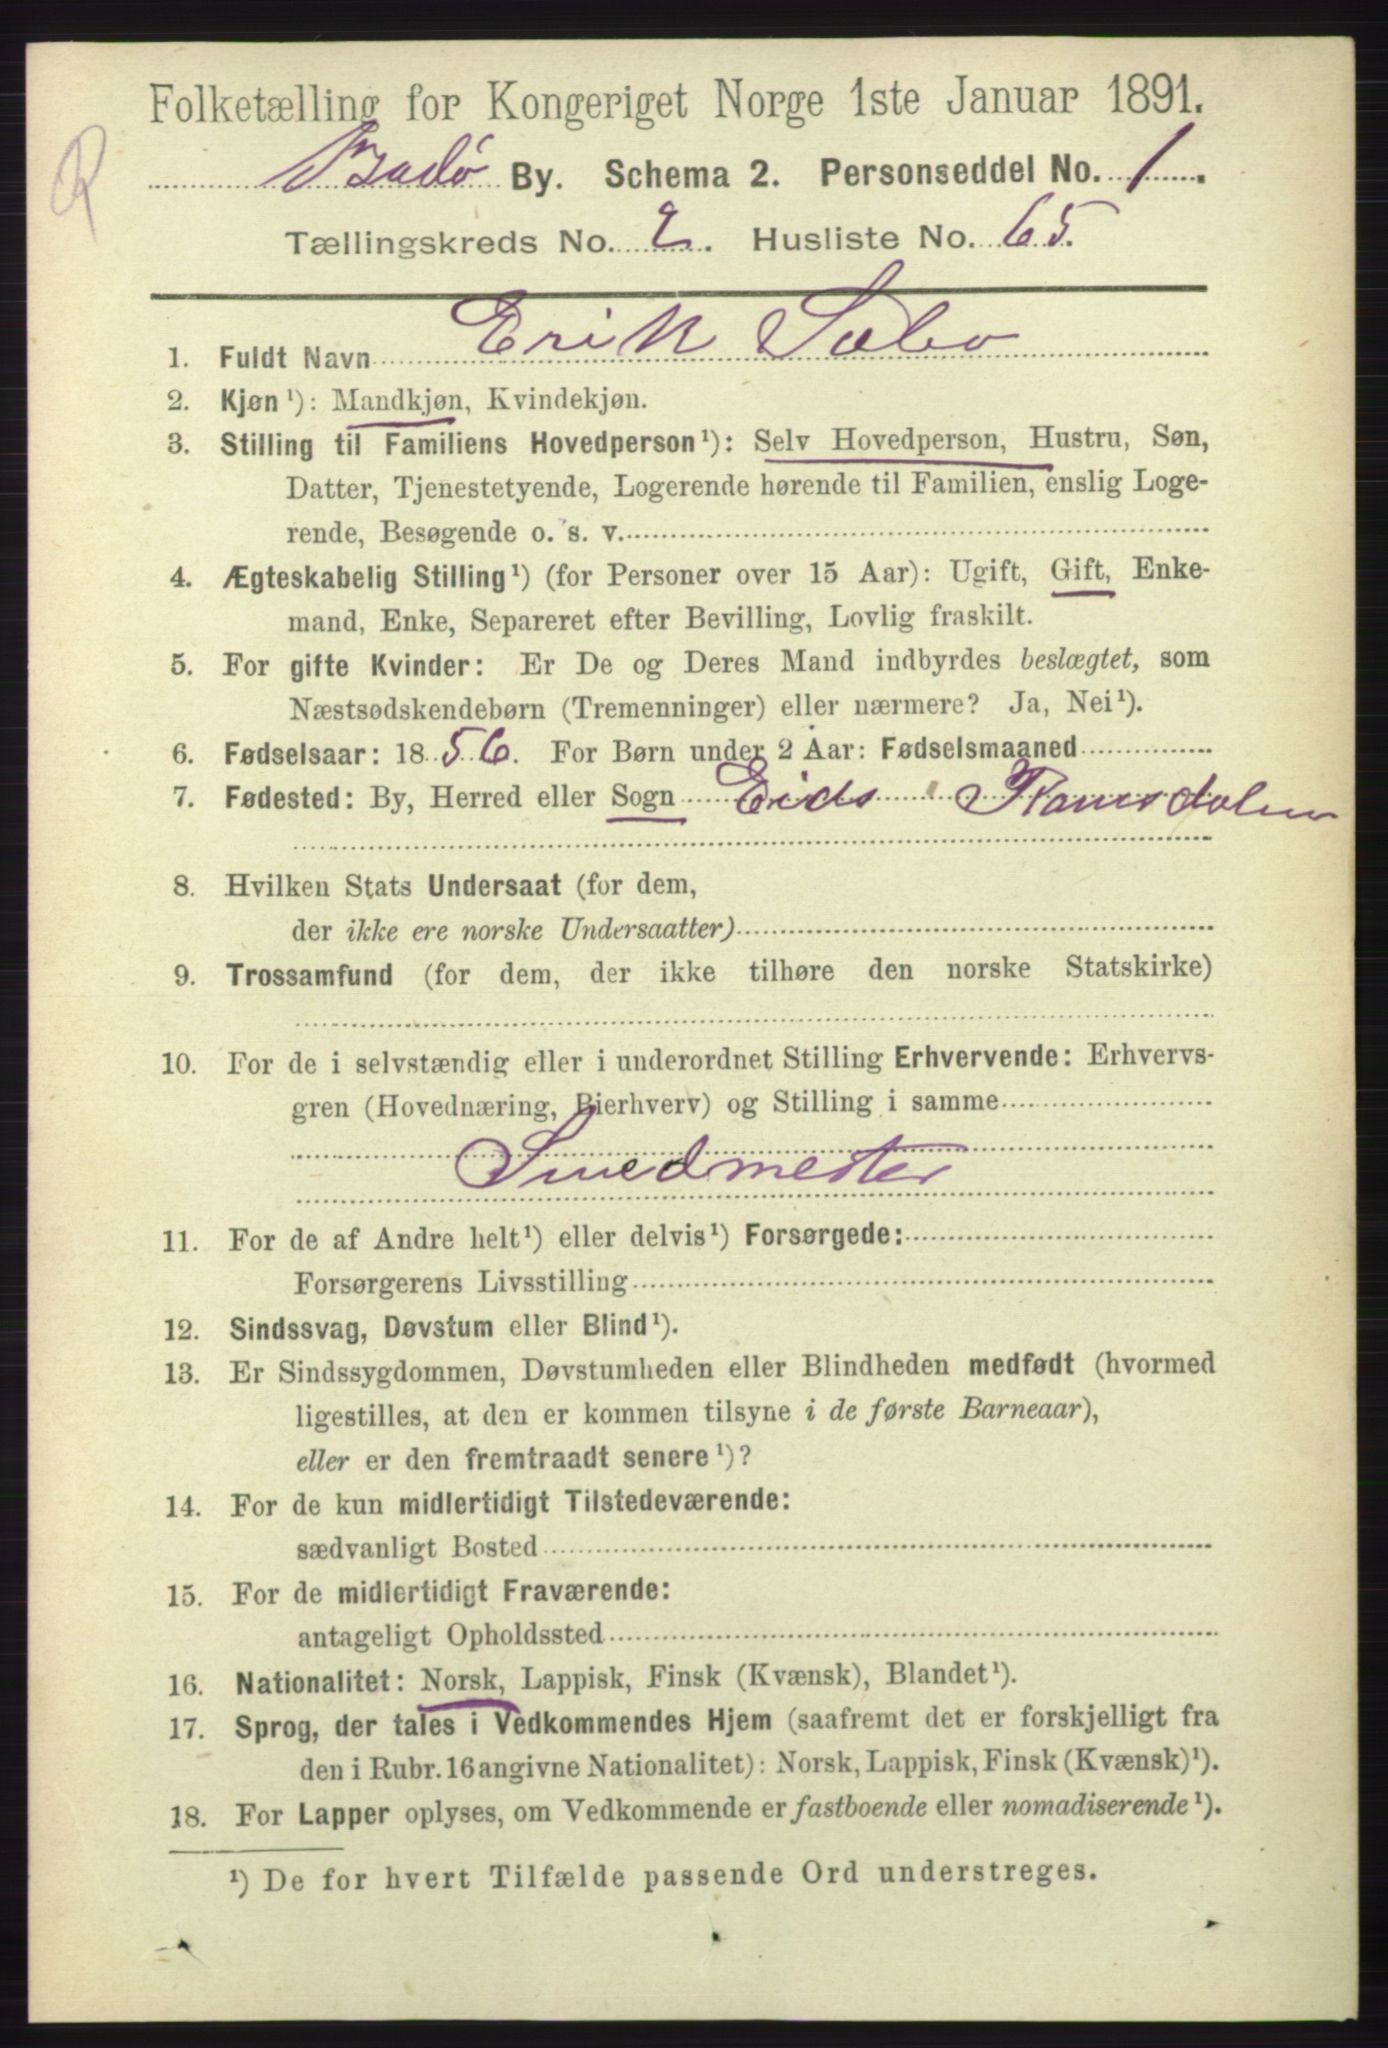 Folketælling for Kongeriget Norge 1ste Januar 1891.
Bodø By. Schema 2. Personseddel No. 1.
Tællingskreds No. 2. Husliste No. 65.
1. Fuldt Navn Erik Sæbø
2. Kjøn ¹): Mandkjøn, Kvindekjøn.
3. Stilling til Familiens Hovedperson¹): Selv Hovedperson, Hustru, Søn,
Datter, Tjenestetyende, Logerende hørende til Familien, enslig Loge-
rende, Besøgende o. s. v.
4. Ægteskabelig Stilling¹) (for Personer over 15 Aar): Ugift, Gift, Enke-
mand, Enke, Separeret efter Bevilling, Lovlig fraskilt.
5. For gifte Kvinder: Er De og Deres Mand indbyrdes beslægtet, som
Næstsødskendebørn (Tremenninger) eller nærmere? Ja, Nei¹).
6. Fødselsaar: 1856. For Børn under 2 Aar: Fødselsmaaned
7. Fødested: By, Herred eller Sogn Eids Ramsdalen
8. Hvilken Stats Undersaat (for dem,
der ikke ere norske Undersaatter)
9. Trossamfund (for dem, der ikke tilhøre den norske Statskirke)
10. For de i selvstændig eller i underordnet Stilling Erhvervende: Erhvervs-
gren (Hovednæring, Bierhverv) og Stilling i samme
Smedmester
11. For de af Andre helt¹) eller delvis¹) Forsørgede:
Forsørgerens Livsstilling
12. Sindssvag, Døvstum eller Blind¹).
13. Er Sindssygdommen, Døvstumheden eller Blindheden medfødt (hvormed
ligestilles, at den er kommen tilsyne i de første Barneaar),
eller er den fremtraadt senere¹)?
14. For de kun midlertidigt Tilstedeværende:
sædvanligt Bosted
15. For de midlertidigt Fraværende:
antageligt Opholdssted
16. Nationalitet: Norsk, Lappisk, Finsk (Kvænsk), Blandet¹).
17. Sprog, der tales i Vedkommendes Hjem (saafremt det er forskjelligt fra
den i Rubr. 16 angivne Nationalitet): Norsk, Lappisk, Finsk (Kvænsk)¹).
18. For Lapper oplyses, om Vedkommende er fastboende eller nomadiserende¹).
¹) De for hvert Tilfælde passende Ord understreges.